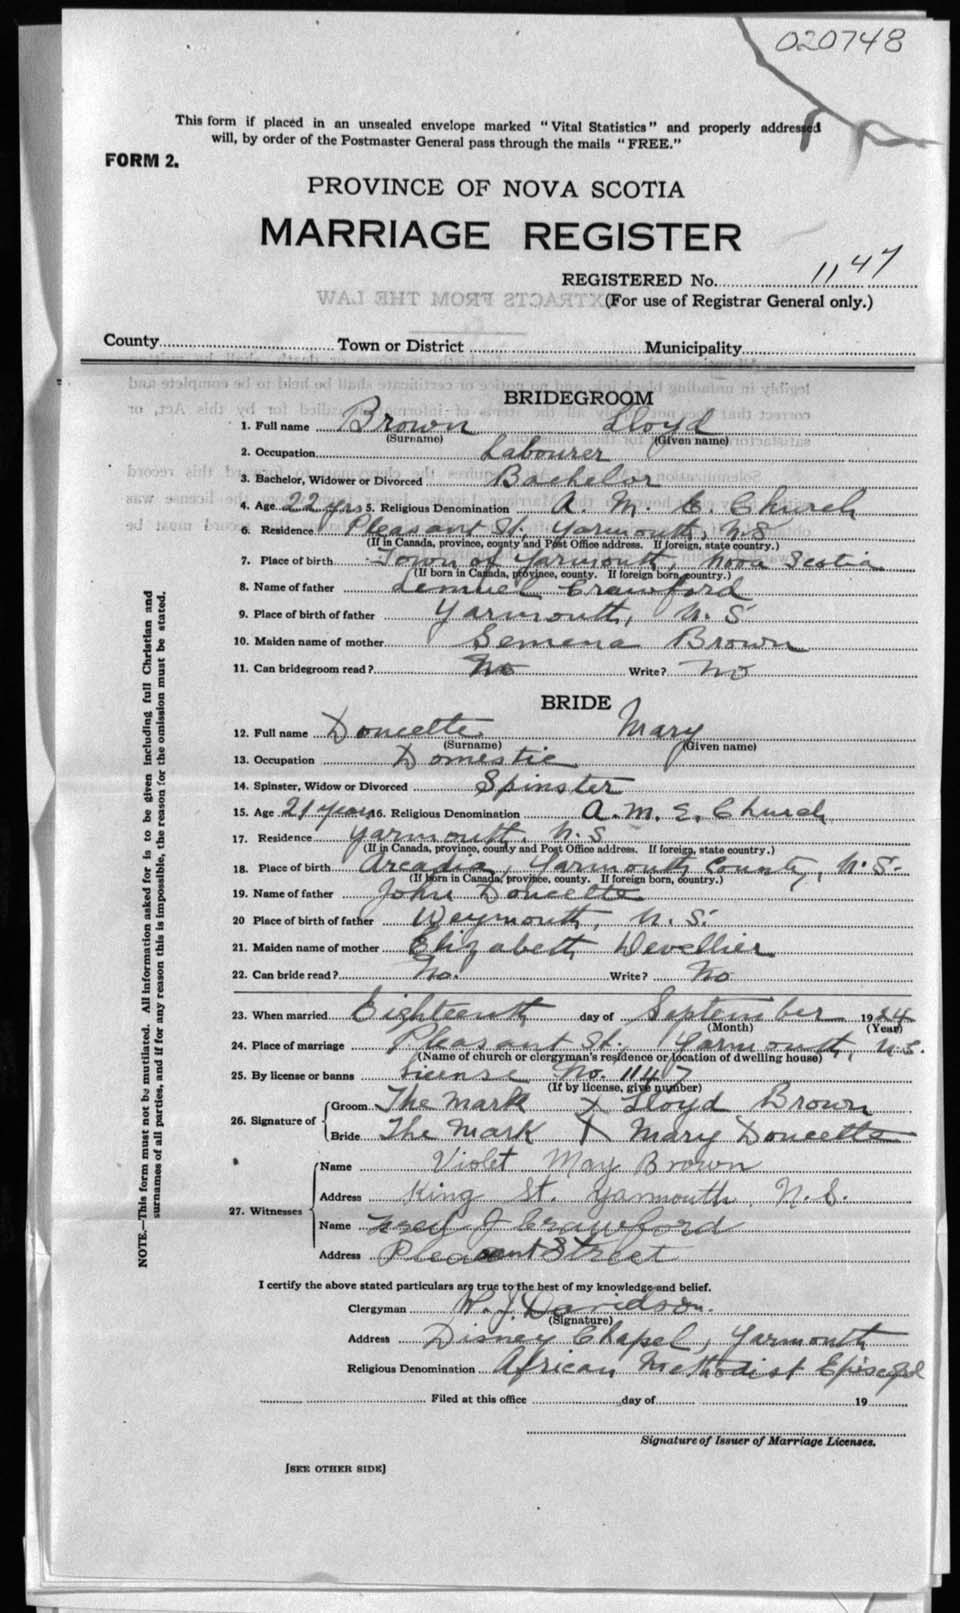 020748
This form if placed in an unsealed envelope marked "Vital Statistics" and properly addressed
will, by order of the Postmaster General pass through the mails "FREE."
FORM 2.
PROVINCE OF NOVA SCOTIA
MARRIAGE REGISTER
REGISTERED No. 1147
(For use of Registrar General only.)
County Town or District Municipality
BRIDEGROOM
1. Full name Brown Lloyd
(Surname) (Given name)
2. Occupation Labourer
3. Bachelor, Widower or Divorced Bachelor
4. Age 22 yrs 5. Religious Denomination A. M. E. Church
6. Residence Pleasant St, Yarmouth, N.S
(If in Canada, province, county and Post Office address. If foreign, state country.)
7. Place of birth Town of Yarmouth, Nova Scotia
(If born in Canada, province, county. If foreign born, country.)
8. Name of father Lemuel Crawford
9. Place of birth of father Yarmouth, N. S
10. Maiden name of mother Semena Brown
11. Can bridegroom read? No Write? No
BRIDE
12. Full name Doucette Mary
(Surname) (Given name)
13. Occupation Domestic
14. Spinster, Widow or Divorced Spinster
15. Age 21 years 16. Religious Denomination A. M. E. Church
17. Residence Yarmouth, N. S
(If in Canada, province, county and Post Office address. If foreign, state country.)
18. Place of birth Arcadia, Yarmouth County, N. S.
(If born in Canada, province, county. If foreign born, country.)
19. Name of father John Doucette
20 Place of birth of father Weymouth, N. S.
21. Maiden name of mother Elizabeth Devellier
22. Can bride read? No. Write? No
23. When married Eighteenth day of September 1924
(Month) (Year)
24. Place of marriage Pleasant St. Yarmouth, N.S.
(Name of church or clergyman's residence or location of dwelling house)
25. By license or banns License No. 1147
(If by license, give number)
26. Signature of Groom The Mark X Lloyd Brown
Bride The Mark X Mary Doucette
27. Witnesses Name Violet May Brown
Address King St. Yarmouth N. S.
Name Fred J Crawford
Address Pleasant Street
I certify the above stated particulars are true to the best of my knowledge and belief.
Clergyman W. J. Davidson.
(Signature)
Address Disney Chapel, Yarmouth
Religious Denomination African Methodist Episcopal
Filed at this office day of 19
Signature of Issuer of Marriage Licenses.
[SEE OTHER SIDE]
NOTE.—This form must not be mutilated. All information asked for is to be given including full Christian and
surnames of all parties, and if for any reason this is impossible, the reason for the omission must be stated.